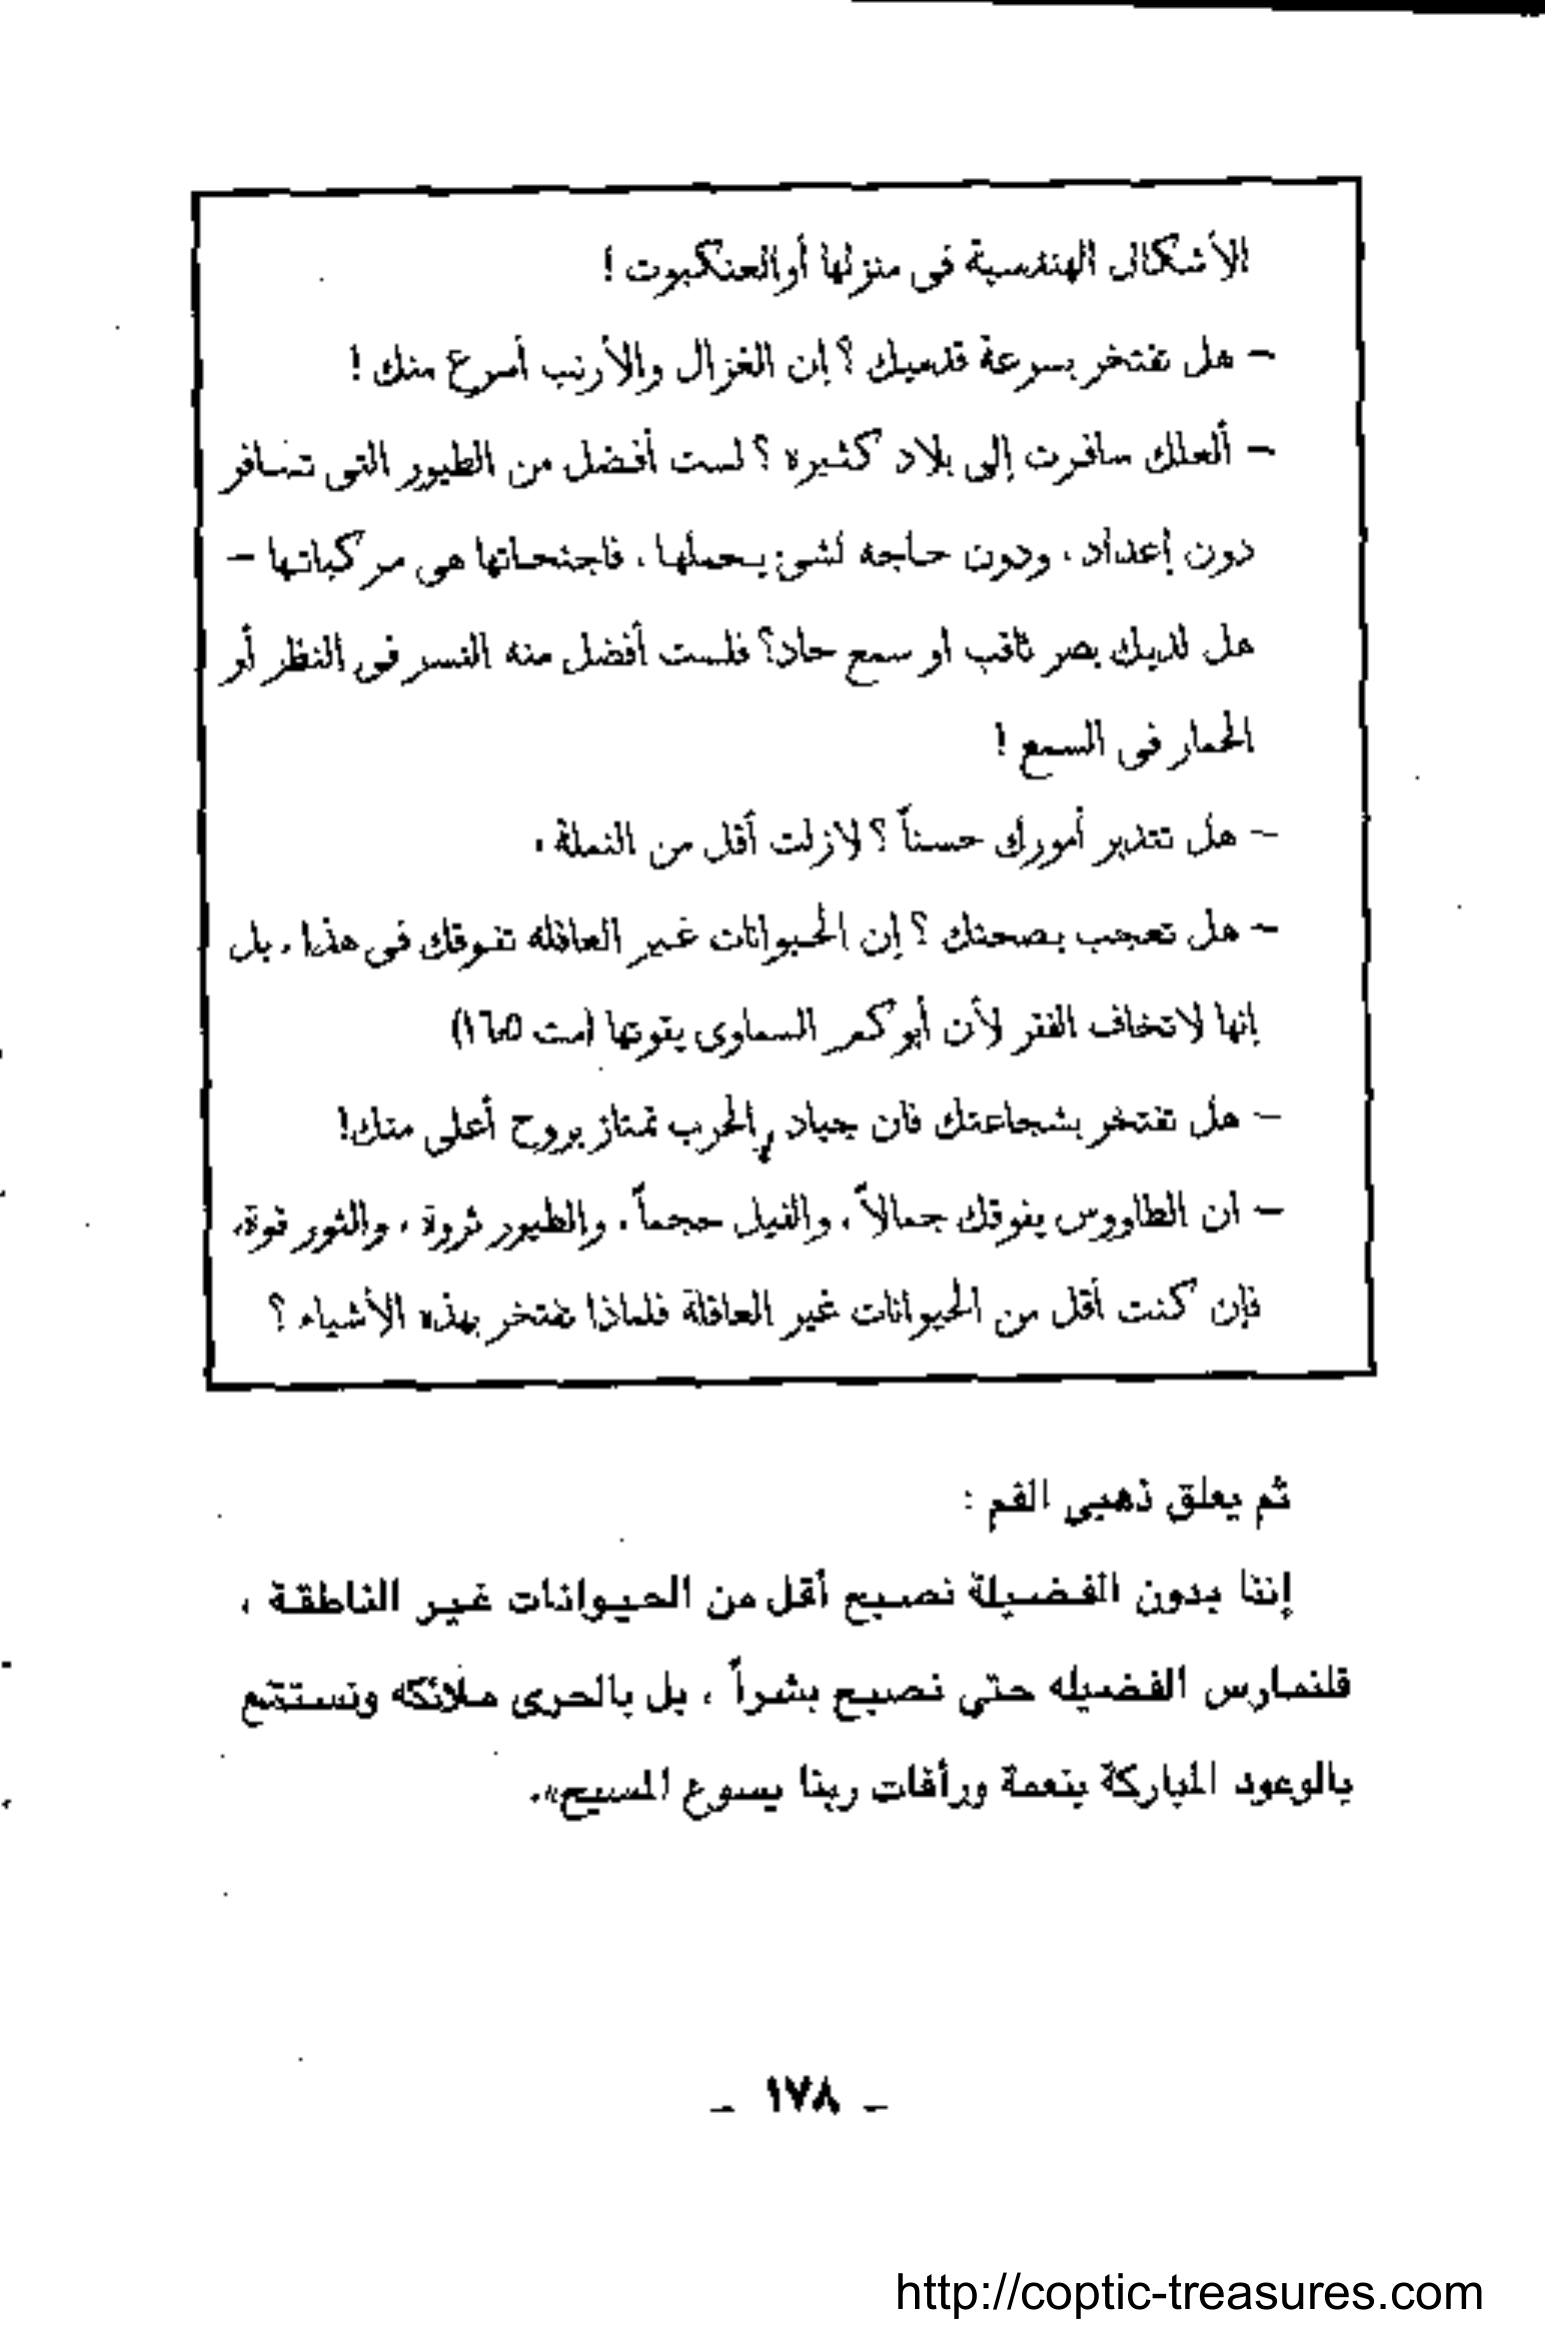 الأشكال الهندسية فى منزلها أوالعنكبوت !
– هل تفتخر بسرعة قدميك ؟ إن الغزال والأرنب أسرع منك !
– ألعلك سافرت إلى بلاد كثيره ؟ لست أفضل من الطيور التى تسافر
دون إعداد ، ودون حاجه لشئ يحملها ، فاجنحاتها هى مركباتها –
هل لديك بصر ثاقب او سمع حاد؟ فلست أفضل منه النسر فى النظر أو
الحمار فى السمع !
– هل تتدبر أمورك حسناً ؟ لازلت أقل من النملة .
– هل تعجب بصحتك ؟ إن الحيوانات غير العاقله تفوقك فى هذا ، بل
إنها لاتخاف الفقر لأن أبوكم السماوى يقوتها (مت ١٦٥)
– هل تفتخر بشجاعتك فان جياد الحرب تمتاز بروح أعلى منك!
– ان الطاووس يفوقك جمالاً ، والفيل حجماً ، والطيور ثروة ، والثور قوة،
فإن كنت أقل من الحيوانات غير العاقلة فلماذا تفتخر بهذه الأشياء ؟
ثم يعلق ذهبى الفم :
إننا بدون الفضيلة نصبح أقل من الحيوانات غير الناطقة ،
فلنمارس الفضيله حتى نصبح بشراً ، بل بالحرى ملائكه ونستمتع
بالوعود المباركة بنعمة ورأفات ربنا يسوع المسيح».
– ١٧٨ –
http://coptic-treasures.com